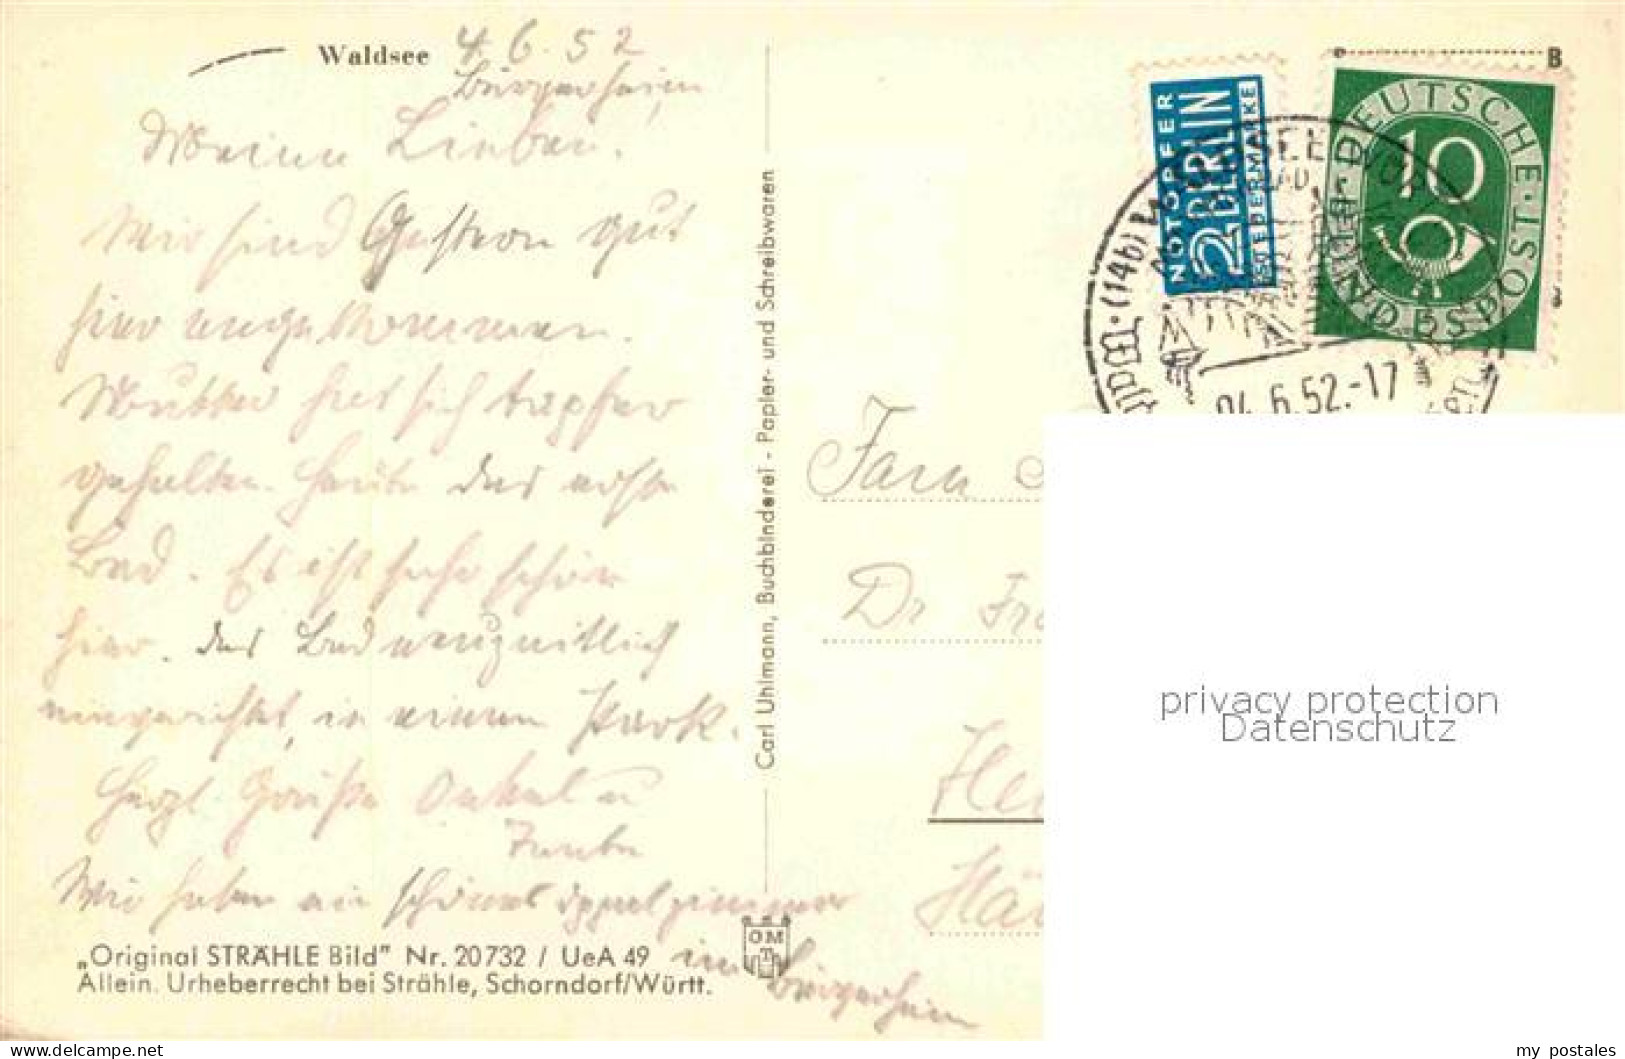 Waldsee
4. 6. 52
Bürgerheim
Meine Lieben.
Wir sind Gestern gut
hier angekommen.
Mutter hat sich tapfer
gehalten. Heute das erste
Bad. Es ist sehr schön
hier. Das Bad neuzeitlich
eingerichtet, in einem Park.
Herzl Grüße Onkel u
Wir haben ein schönes Doppelzimmer
im Bürgerheim
„Original STRÄHLE Bild" Nr. 20732 / UeA 49
Allein. Urheberrecht bei Strähle, Schorndorf/Württ.
Carl Uhlmann, Buchbinderei - Papier- und Schreibwaren
NOTOPFER
2 BERLIN
STEUERMARKE
DEUTSCHE BUNDESPOST
10
B
(14b) WALDSEE
04.6.52.-17
Dr
privacy protection
Datenschutz
my postales
www.delcampe.net